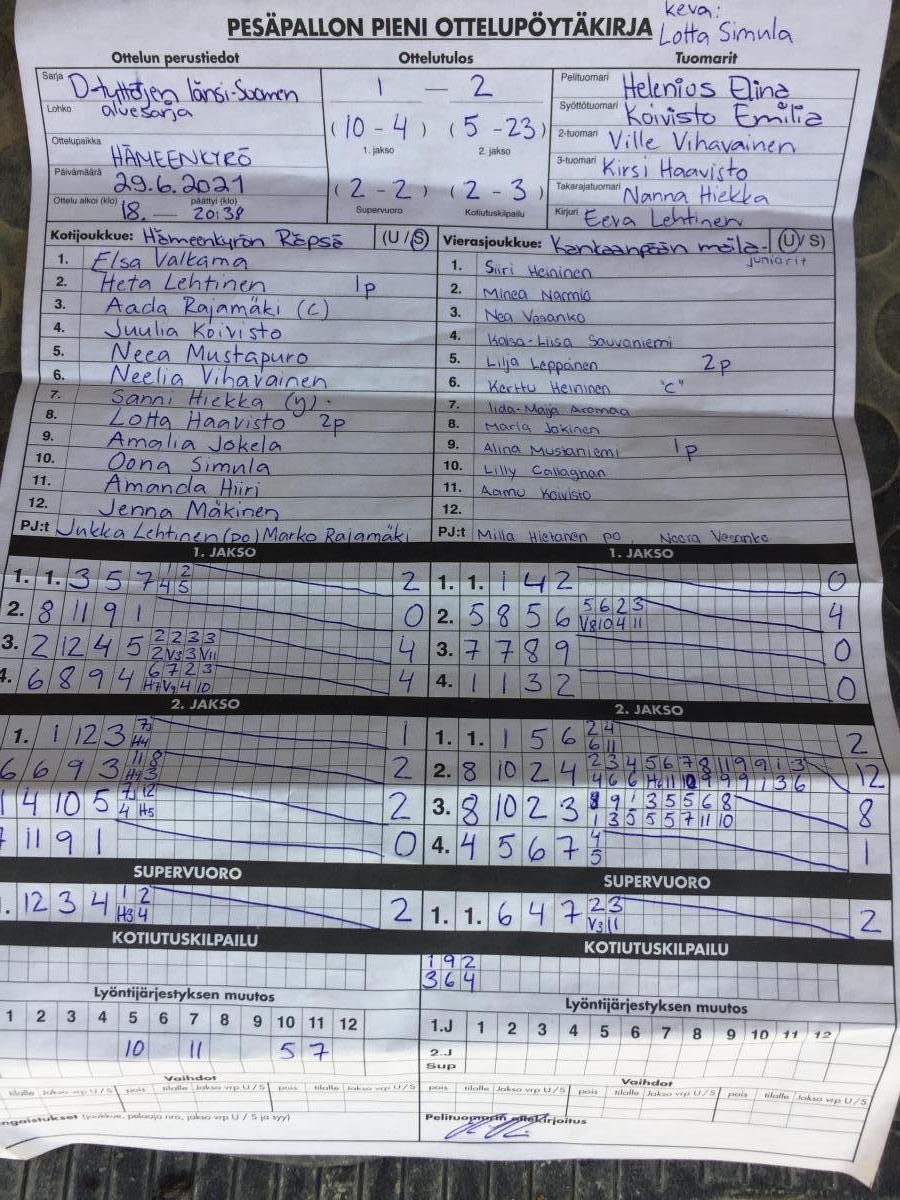 keva:
PESÄPALLON PIENI OTTELUPÖYTÄKIRJA Lotta Simula
Ottelun perustiedot Ottelutulos Tuomarit
Sarja D-tyttöjen länsi-Suomen
Lohko aluesarja
Ottelupaikka HÄMEENKYRÖ
Päivämäärä 29.6.2021
Ottelu alkoi (klo) 18. — päättyi (klo) 20:38
1 — 2
(10 - 4) (5 - 23)
1. jakso 2. jakso
(2 - 2) (2 - 3)
Supervuoro Kotiutuskilpailu
Pelituomari Helenius Elina
Syöttötuomari Koivisto Emilia
2-tuomari Ville Vihavainen
3-tuomari Kirsi Haavisto
Takarajatuomari Nanna Hiekka
Kirjuri Eeva Lehtinen
Kotijoukkue: Hämeenkyrön Räpsä (U/S)
1. Elsa Valkama
2. Heta Lehtinen 1p
3. Aada Rajamäki (c)
4. Juulia Koivisto
5. Neea Mustapuro
6. Neelia Vihavainen
7. Sanni Hiekka (y).
8. Lotta Haavisto 2p
9. Amalia Jokela
10. Oona Simula
11. Amanda Hiiri
12. Jenna Mäkinen
PJ:t Jukka Lehtinen (po) Marko Rajamäki
Vierasjoukkue: Kankaanpään maila- (U/S)
juniorit
1. Siiri Heininen
2. Minea Narmio
3. Nea Vesanko
4. Kaisa-Liisa Sauvaniemi
5. Lilja Leppänen 2p
6. Kerttu Heininen "C"
7. Iida-Maija Aromaa
8. Maria Jokinen
9. Alina Mustaniemi 1p
10. Lilly Callaghan
11. Aamu Koivisto
12.
PJ:t Milla Hietanen po, Noora Vesanko
1. JAKSO
1. 1. 3 5 7 1 2 2
4 5
2. 8 11 9 1 0
3. 2 12 4 5 2 2 3 3 4
2 V3 3 V11
4. 6 8 9 4 6 7 2 3 4
H7 V9 4 10
1. JAKSO
1. 1. 1 4 2 0
2. 5 8 5 6 5 6 2 3 4
V8 10 4 11
3. 7 7 8 9 0
4. 1 1 3 2 0
2. JAKSO
1. 1 12 3 1
H4
6 6 9 3 11 8 2
H9 3
1 4 10 5 12 2
4 H5
7 11 9 1 0
2. JAKSO
1. 1. 1 5 6 2 4 2
6 11
2. 8 10 2 4 2 3 4 5 6 7 8 11 9 9 1 3 12
4 6 6 H6 11 10 9 9 9 1 3 6
3. 8 10 2 3 8 9 1 3 5 5 6 8 8
1 3 5 5 5 7 11 10
4. 4 5 6 7 4 1
5
SUPERVUORO
. 12 3 4 1 2 2
H3 4
SUPERVUORO
1. 1. 6 4 7 2 3 2
V3 11
KOTIUTUSKILPAILU
KOTIUTUSKILPAILU
1 9 2
3 6 4
Lyöntijärjestyksen muutos
1 2 3 4 5 6 7 8 9 10 11 12
10 11 5 7
Lyöntijärjestyksen muutos
1.J 1 2 3 4 5 6 7 8 9 10 11 12
2.J
Sup
Vaihdot
tilalle Jakso vrp U/S pois tilalle Jakso vrp U/S pois tilalle Jakso vrp U/S
Vaihdot
pois tilalle Jakso vrp U/S pois tilalle Jakso vrp U/S pois tilalle Jakso vrp U/S
ngaistukset (joukkue, pelaaja nro, jakso vrp U / S ja syy)
Pelituomarin allekirjoitus